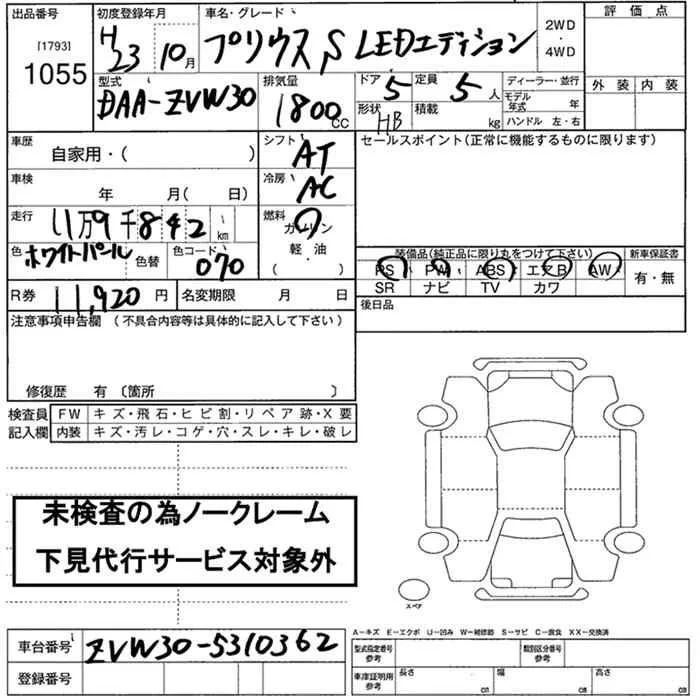 出品番号 [1793] 1055
初度登録年月 H23 10月
車名・グレード プリウス S LEDエディション
2WD・4WD
評価点
外装 内装
型式 DAA-ZVW30
排気量 1800cc
ドア 5 定員 5人
形状 HB 積載 kg
ディーラー・並行
モデル年式 年
ハンドル 左・右
車歴 自家用・( )
シフト AT
セールスポイント(正常に機能するものに限ります)
車検 年 月( 日)
冷房 AC
走行 11万9千842km
燃料 ガソリン 軽・油 ( )
色 ホワイトパール 色替
色コード 070
装備品(純正品に限り丸をつけて下さい)
PS PW ABS エアB AW
SR ナビ TV カワ
新車保証書 有・無
R券 11,920円
名変期限 月 日
後日品
注意事項申告欄(不具合内容等は具体的に記入して下さい)
修復歴 有〔箇所 〕
検査員記入欄
FW キズ・飛石・ヒビ割・リペア跡・X要
内装 キズ・汚レ・コゲ・穴・スレ・キレ・破レ
未検査の為ノークレーム
下見代行サービス対象外
スペア
車台番号 ZVW30-5310362
登録番号
A-キズ E-エクボ U-凹み W-補修跡 S-サビ C-腐食 XX-交換済
型式指定番号 参考
類別区分番号 参考
車庫証明用 参考
長さ cm 幅 cm 高さ cm